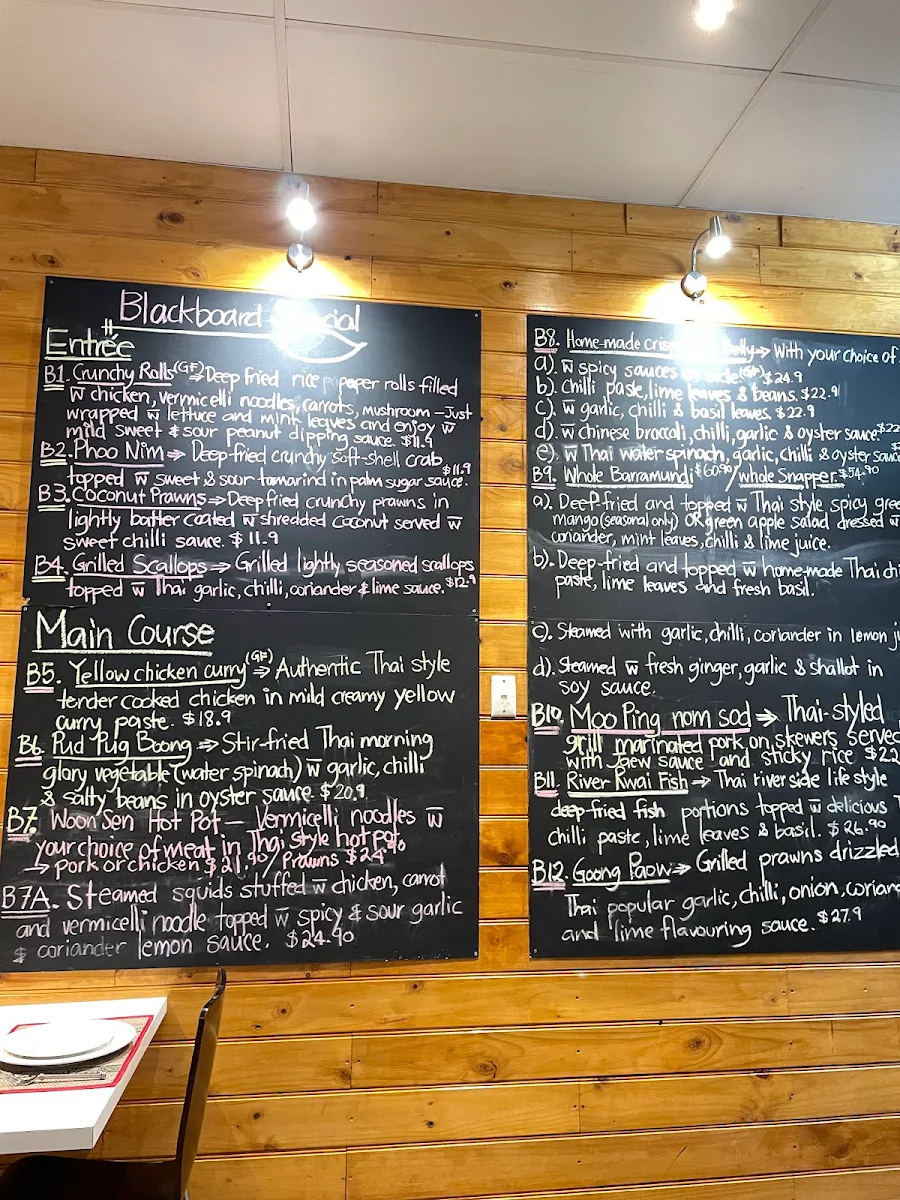 Blackboard
Entrée
B1. Crunchy Rolls (GF) ⇒ Deep fried rice paper rolls filled
w̅ chicken, vermicelli noodles, carrots, mushroom – Just
wrapped w̅ lettuce and mint leaves and enjoy w̅
mild sweet & sour peanut dipping sauce. $11.9
B2. Phoo Nim ⇒ Deep fried crunchy soft-shell crab
topped w̅ sweet & sour tamarind in palm sugar sauce. $11.9
B3. Coconut Prawns ⇒ Deep fried crunchy prawns in
lightly batter coated w̅ shredded coconut served w̅
sweet chilli sauce. $11.9
B4. Grilled Scallops ⇒ Grilled lightly seasoned scallops
topped w̅ Thai garlic, chilli, coriander & lime sauce. $12.9
Main Course
B5. Yellow chicken curry (GF) ⇒ Authentic Thai style
tender cooked chicken in mild creamy yellow
curry paste. $18.9
B6. Pud Pug Boong ⇒ Stir-fried Thai morning
glory vegetable (water spinach) w̅ garlic, chilli
& salty beans in oyster sauce. $20.9
B7. Woon Sen Hot Pot – Vermicelli noodles w̅
your choice of meat in Thai style hot pot.
→ pork or chicken $21.90 / Prawns $24.90
B7A. Steamed squids stuffed w̅ chicken, carrot
and vermicelli noodle topped w̅ spicy & sour garlic
& coriander lemon sauce. $24.90
B8. Home-made → With your choice of
a). w̅ spicy sauces (GF) $24.9
b). Chilli paste, lime leaves & beans. $22.9
c). w̅ garlic, chilli & basil leaves. $22.9
d). w̅ chinese broccoli, chilli, garlic & oyster sauce.
e). w̅ Thai water spinach, garlic, chilli & oyster
B9. Whole Barramundi $60.90 / whole Snapper. $54.90
a). Deep-fried and topped w̅ Thai style spicy
mango (seasonal only) OR green apple salad dressed w̅
coriander, mint leaves, chilli & lime juice.
b). Deep-fried and topped w̅ home-made Thai
paste, lime leaves and fresh basil.
c). Steamed with garlic, chilli, coriander in lemon
d). Steamed w̅ fresh ginger, garlic & shallot in
soy sauce.
B10. Moo Ping nom sod ⇒ Thai-styled
grill marinated pork on skewers served
with Jaew sauce and sticky rice
B11. River Kwai Fish → Thai riverside life style
deep-fried fish portions topped w̅ delicious
chilli paste, lime leaves & basil. $26.90
B12. Goong Paow ⇒ Grilled prawns drizzled
Thai popular garlic, chilli, onion,
and lime flavouring sauce. $27.9